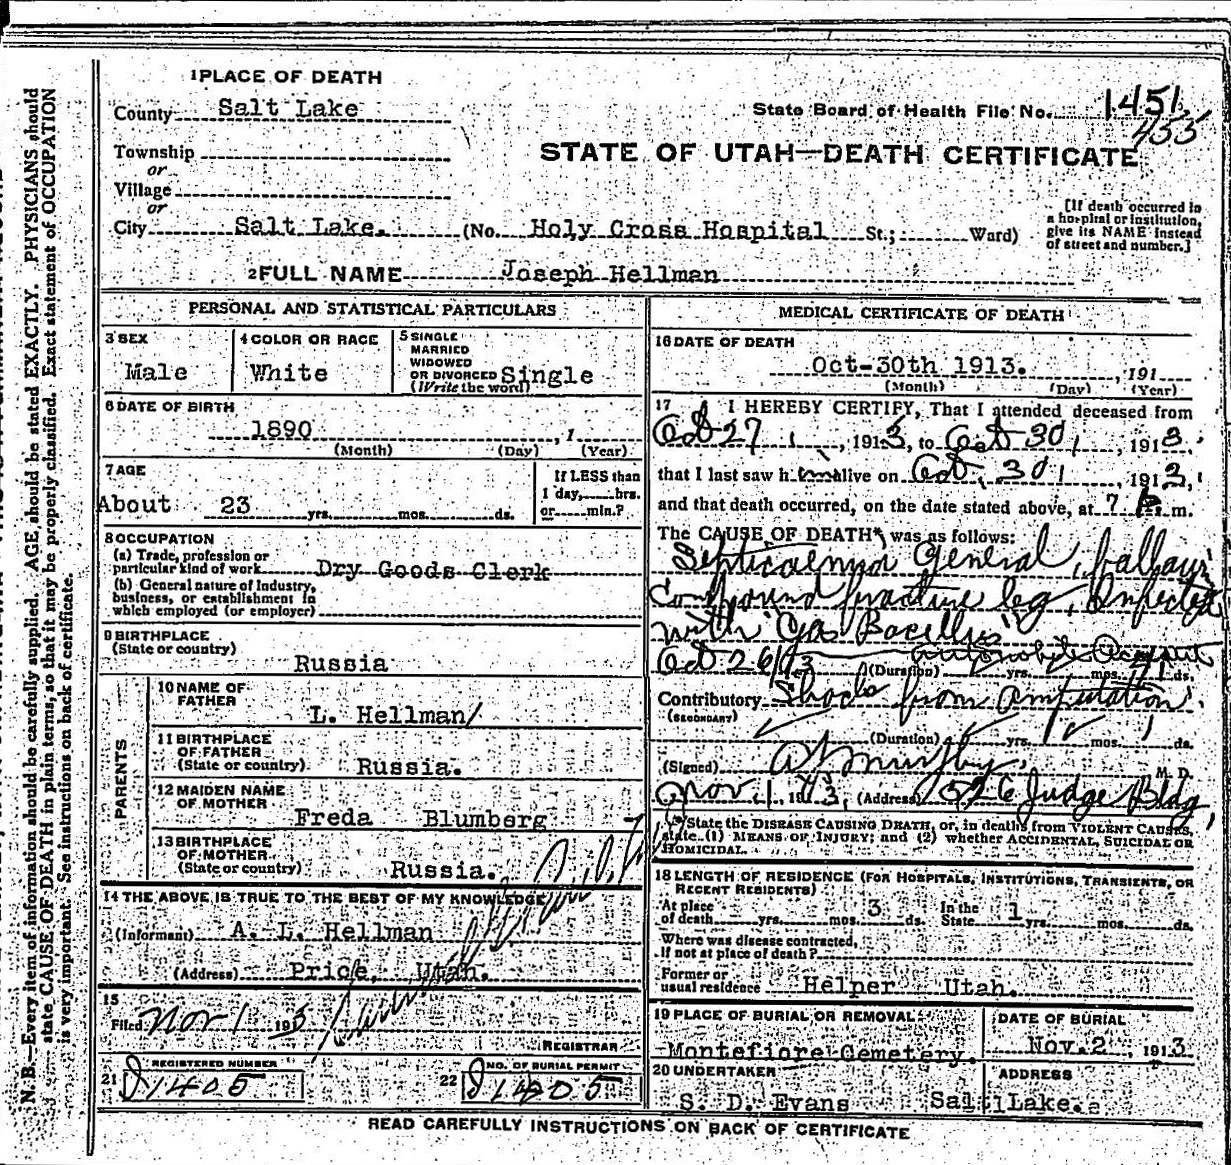 1 PLACE OF DEATH
County Salt Lake
State Board of Health File No. 1451
455
Township
or
STATE OF UTAH—DEATH CERTIFICATE
Village
or
City Salt Lake. (No. Holy Cross Hospital St.; Ward)
[If death occurred in
a hospital or institution,
give its NAME instead
of street and number.]
2 FULL NAME Joseph Hellman
PERSONAL AND STATISTICAL PARTICULARS
3 SEX
Male
4 COLOR OR RACE
White
5 SINGLE
MARRIED
WIDOWED
OR DIVORCED
(Write the word) Single
6 DATE OF BIRTH
1890 , 1
(Month) (Day) (Year)
7 AGE
About 23 yrs. mos. ds.
If LESS than
1 day, hrs.
or min.?
8 OCCUPATION
(a) Trade, profession or
particular kind of work Dry Goods Clerk
(b) General nature of Industry,
business, or establishment in
which employed (or employer)
9 BIRTHPLACE
(State or country)
Russia
PARENTS
10 NAME OF
FATHER
L. Hellman/
11 BIRTHPLACE
OF FATHER
(State or country) Russia.
12 MAIDEN NAME
OF MOTHER
Freda Blumberg
13 BIRTHPLACE
OF MOTHER
(State or country) Russia.
14 THE ABOVE IS TRUE TO THE BEST OF MY KNOWLEDGE
(Informant) A. L. Hellman
(Address) Price, Utah.
15
Filed Nov 1 1913
REGISTRAR
REGISTERED NUMBER
21 J1405
NO. OF BURIAL PERMIT
22 J1405
MEDICAL CERTIFICATE OF DEATH
16 DATE OF DEATH
Oct-30th 1913. , 191
(Month) (Day) (Year)
17 I HEREBY CERTIFY, That I attended deceased from
Oct 27, 1913, to Oct 30, 1913.
that I last saw him alive on Oct. 30, 1913,
and that death occurred, on the date stated above, at 7 P. m.
The CAUSE OF DEATH* was as follows:
Septicaemia General, follows
Compound fracture leg, Infected
with "Gas Bacillus"
Oct 26/13 automobile Accident
(Duration) yrs. mos. 4 ds.
Contributory Shock from Amputation.
(SECONDARY)
(Duration) yrs. mos. 1 ds.
(Signed) A Murphy, M. D.
Nov. 1, 1913, (Address) 526 Judge Bldg,
*State the DISEASE CAUSING DEATH, or, in deaths from VIOLENT CAUSES,
state (1) MEANS OF INJURY; and (2) whether ACCIDENTAL, SUICIDAL OR
HOMICIDAL.
18 LENGTH OF RESIDENCE (FOR HOSPITALS, INSTITUTIONS, TRANSIENTS, OR
RECENT RESIDENTS)
At place
of death yrs. mos. 3 ds. In the
State 1 yrs. mos. ds.
Where was disease contracted,
if not at place of death?
Former or
usual residence Helper Utah.
19 PLACE OF BURIAL OR REMOVAL
Montefiore Cemetery.
DATE OF BURIAL
Nov. 2, 1913
20 UNDERTAKER
S. D. Evans
ADDRESS
Salt Lake.
READ CAREFULLY INSTRUCTIONS ON BACK OF CERTIFICATE
N. B.—Every item of information should be carefully supplied. AGE should be stated EXACTLY. PHYSICIANS should
state CAUSE OF DEATH in plain terms, so that it may be properly classified. Exact statement of OCCUPATION
is very important. See instructions on back of certificate.